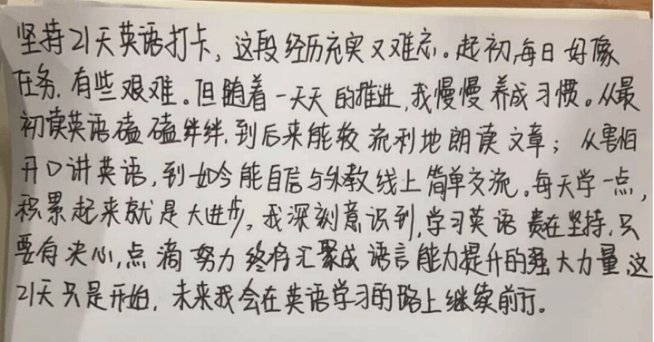 坚持21天英语打卡，这段经历充实又难忘。起初，每日好像
任务，有些艰难。但随着一天天的推进，我慢慢养成习惯。从最
初读英语磕磕绊绊，到后来能较流利地朗读文章；从害怕
开口讲英语，到如今能自信与外教线上简单交流。每天学一点，
积累起来就是大进步。我深刻意识到，学习英语贵在坚持，只
要有决心，点滴努力终将汇聚成语言能力提升的强大力量，这
21天只是开始，未来我会在英语学习的路上继续前行。